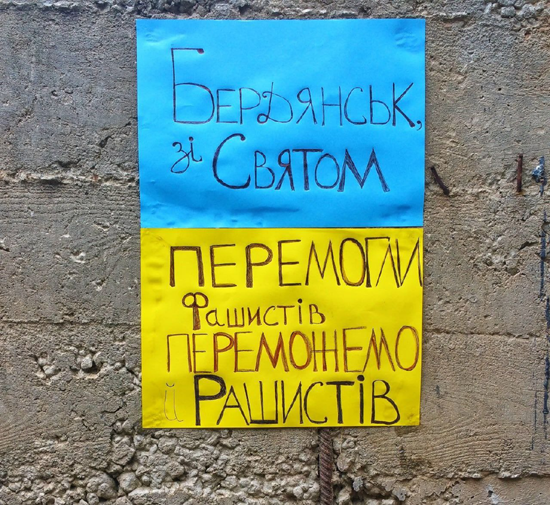 Бердянськ,
зі Святом
ПЕРЕМОГЛИ
Фашистів
ПЕРЕМОЖЕМО
й РАШИСТІВ